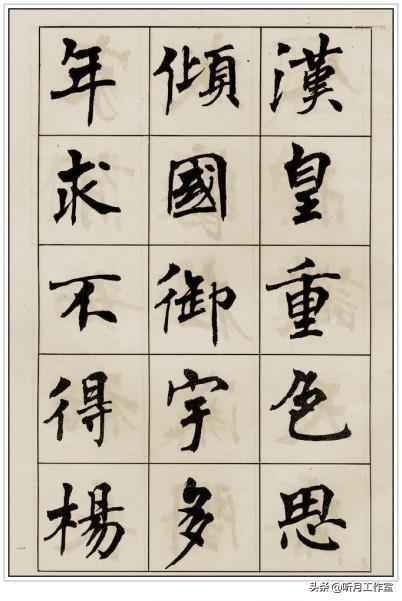 漢皇重色思
傾國御宇多
年求不得楊
一
头条 @听月工作室